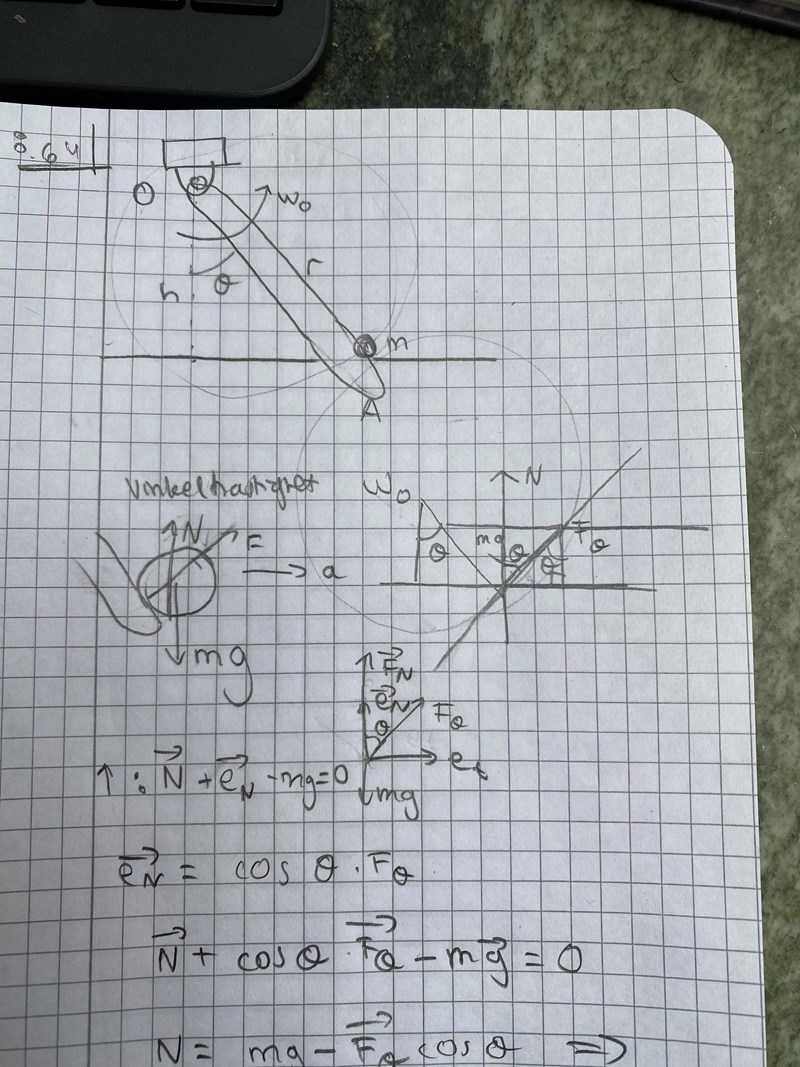 8.64
O
ω₀
r
h θ
m
A
Vinkelhastighet ω₀
N
N F
mg θ F_θ
θ θ
a
mg
F⃗_N
e⃗_N
θ F_θ
e_t
↑: N⃗ + e⃗_N - mg = 0
mg
e⃗_N = cos θ · F_θ
N⃗ + cos θ · F⃗_θ - mg⃗ = 0
N = mg - F⃗_θ cos θ ⇒